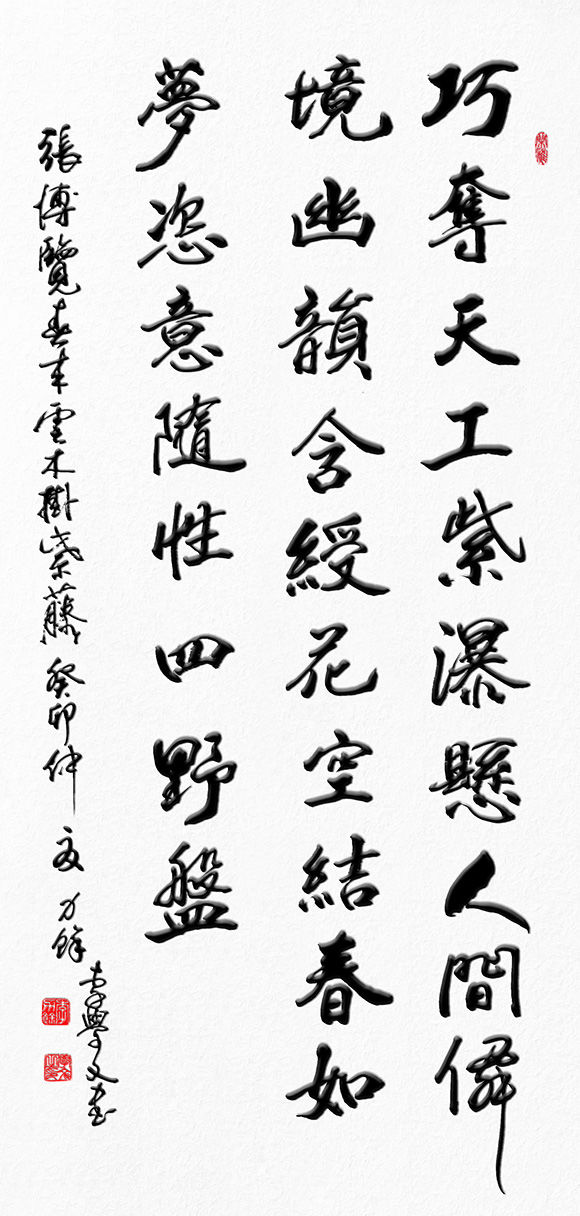 巧奪天工紫瀑懸人間僊
境幽韻含綬花空結春如
夢恣意隨性四野盤
張博覽春來雲木掛紫藤癸卯仲夏力鋒
李學文書